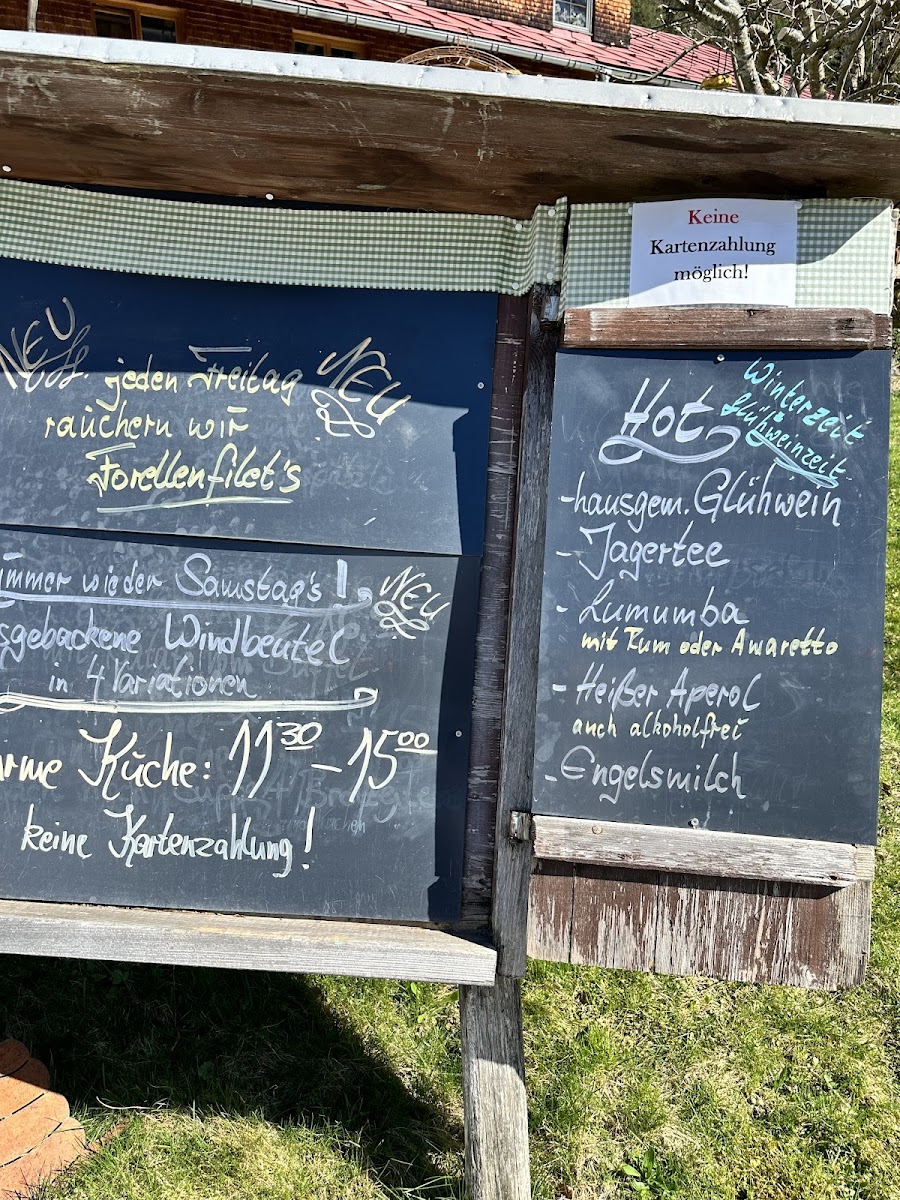 NEU jeden Freitag NEU
räuchern wir
Forellenfilet's
immer wieder Samstag's!
NEU
gebackene Windbeutel
in 4 Variationen
Küche: 11³⁰ - 15⁰⁰
keine Kartenzahlung!
Keine
Kartenzahlung
möglich!
Hot
Winterzeit
Glühweinzeit
- hausgem. Glühwein
- Jagertee
- Lumumba
mit Rum oder Amaretto
- Heißer Aperol
auch alkoholfrei
- Engelsmilch